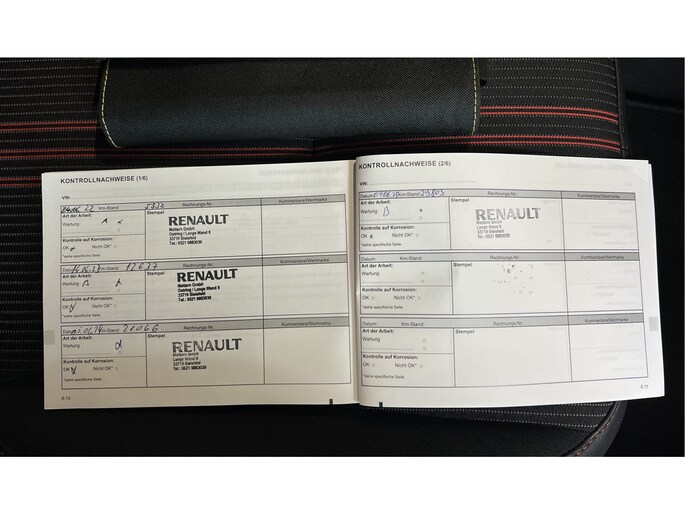 KONTROLLNACHWEISE (1/6)
VIN:
Km-Stand: Rechnungs-Nr.: Kommentare/Wartmarke
Art der Arbeit: Stempel
Wartung
RENAULT
Mattern GmbH
Oelring / Lange Wand 8
33719 Bielefeld
Tel.: 0521 9883030
Kontrolle auf Korrosion:
OK Nicht OK*
*siehe spezifische Seite
Datum Km-Stand: 12637 Rechnungs-Nr.: Kommentare/Wartmarke
Art der Arbeit: Stempel
Wartung
RENAULT
Mattern GmbH
Oelring / Lange Wand 8
33719 Bielefeld
Tel.: 0521 9883030
Kontrolle auf Korrosion:
OK Nicht OK*
*siehe spezifische Seite
Datum Km-Stand: 21066 Rechnungs-Nr.: Kommentare/Wartmarke
Art der Arbeit: Stempel
Wartung
RENAULT
Mattern GmbH
Lange Wand 8
33719 Bielefeld
Tel.: 0521 9883030
Kontrolle auf Korrosion:
OK Nicht OK*
*siehe spezifische Seite
6.10
KONTROLLNACHWEISE (2/6)
VIN:
Datum Km-Stand: 29803 Rechnungs-Nr.: Kommentare/Wartmarke
Art der Arbeit: Stempel
Wartung B
RENAULT
Mattern GmbH
Lange Wand 8
33719 Bielefeld
Tel.: 0521 9883030
Kontrolle auf Korrosion:
OK Nicht OK*
*siehe spezifische Seite
Datum: Km-Stand: Rechnungs-Nr.: Kommentare/Wartmarke
Art der Arbeit: Stempel
Wartung
Kontrolle auf Korrosion:
OK Nicht OK*
*siehe spezifische Seite
Datum: Km-Stand: Rechnungs-Nr.: Kommentare/Wartmarke
Art der Arbeit: Stempel
Wartung
Kontrolle auf Korrosion:
OK Nicht OK*
*siehe spezifische Seite
6.11